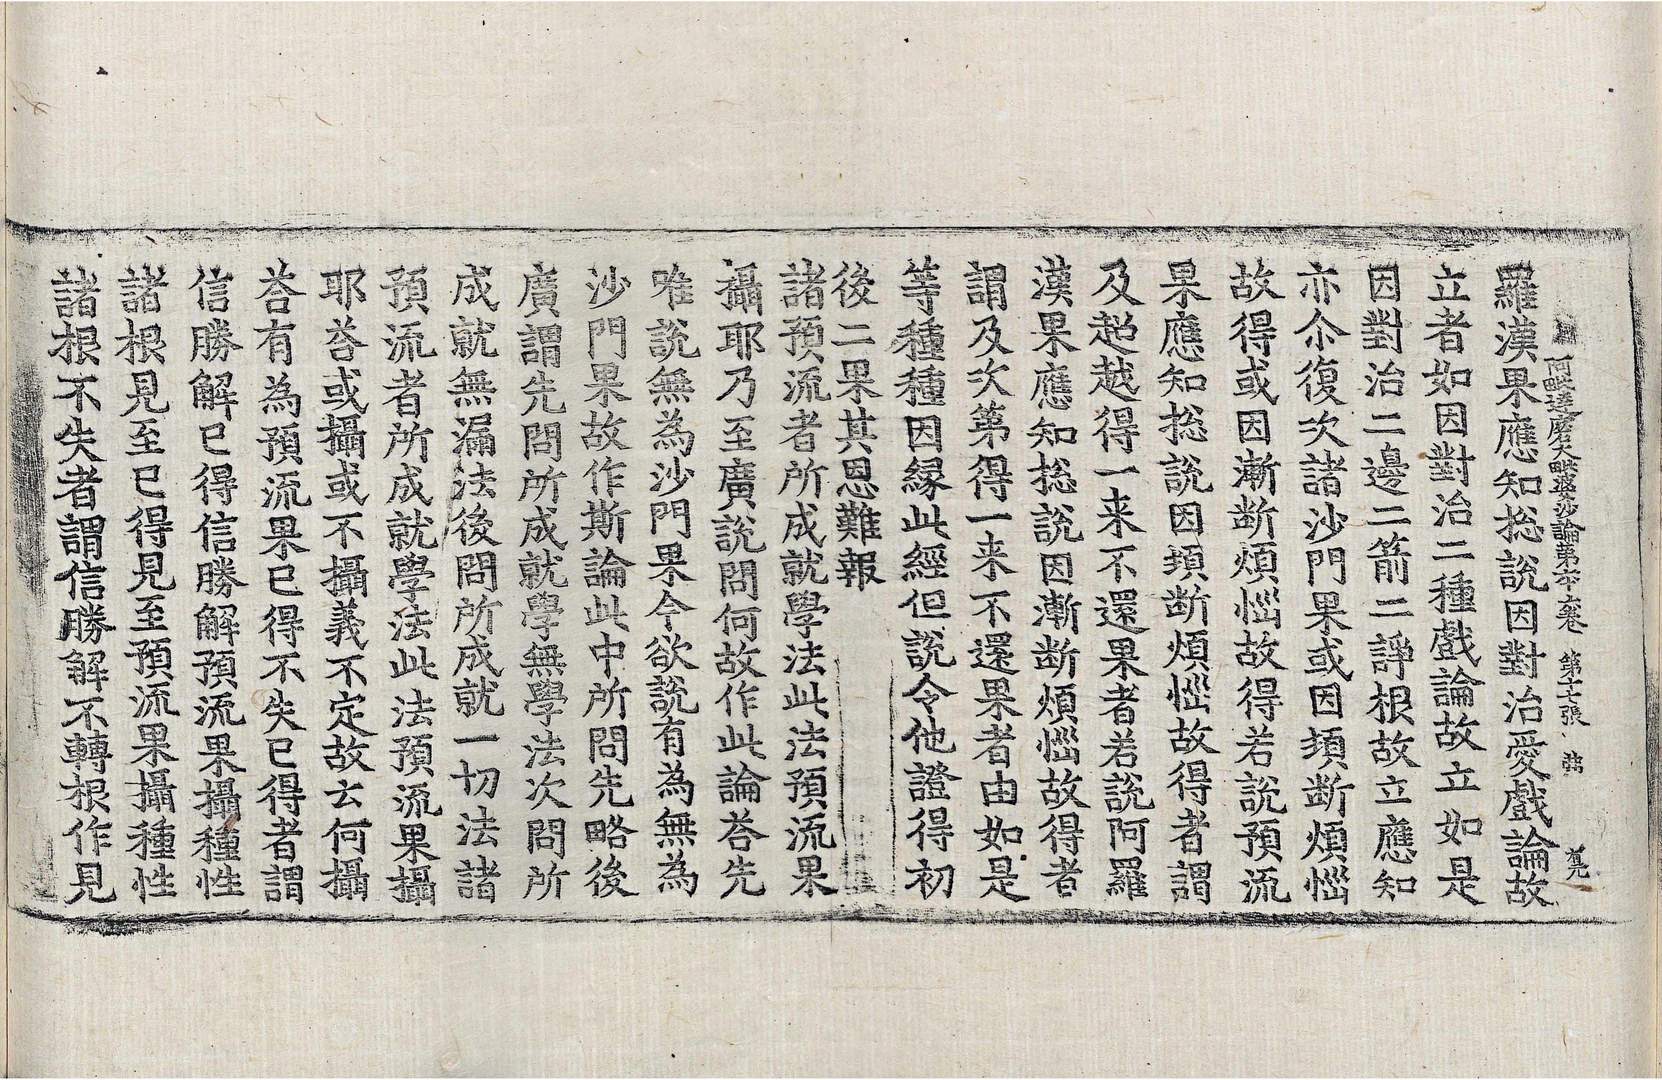 阿毗達磨大毗婆沙論第六十六卷 第十七張 弗
羅漢果應知捴說因對治愛戲論故
立者如因對治二種戲論故立如是
因對治二邊二箭二諍根故立應知
亦尒復次諸沙門果或因頓斷煩惱
故得或因漸斷煩惱故得若說預流
果應知捴說因頓斷煩惱故得者謂
及超越得一来不還果者若說阿羅
漢果應知捴說因漸斷煩惱故得者
謂及次第得一来不還果者由如是
等種種因緣此經但說令他證得初
後二果其恩難報
諸預流者所成就學法此法預流果
攝耶乃至廣說問何故作此論荅先
唯說無為沙門果今欲說有為無為
沙門果故作斯論此中所問先略後
廣謂先問所成就學無學法次問所
成就無漏法後問所成就一切法諸
預流者所成就學法此法預流果攝
耶荅或攝或不攝義不定故云何攝
荅有為預流果已得不失已得者謂
信勝解已得信勝解預流果攝種性
諸根見至已得見至預流果攝種性
諸根不失者謂信勝解不轉根作見